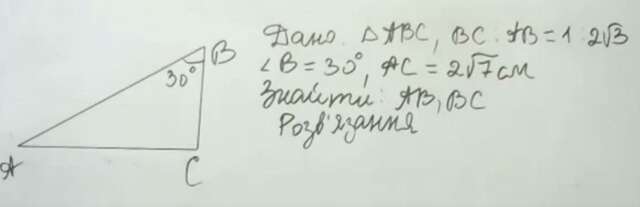 B
30°
A
C
Дано: △ABC, BC:AB=1:2√3
∠B=30°, AC=2√7см
Знайти: AB, BC
Розв'язання